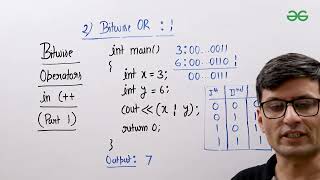 2) Bitwise OR : |
Bitwise
Operators
in C++
(Part 1)
int main()
{
int x = 3;
int y = 6;
cout << (x | y);
return 0;
}
Output: 7
3:00...0011
6:00...0110 |
00...0111
Ist IInd
0 0
0 1
1 0
1 1